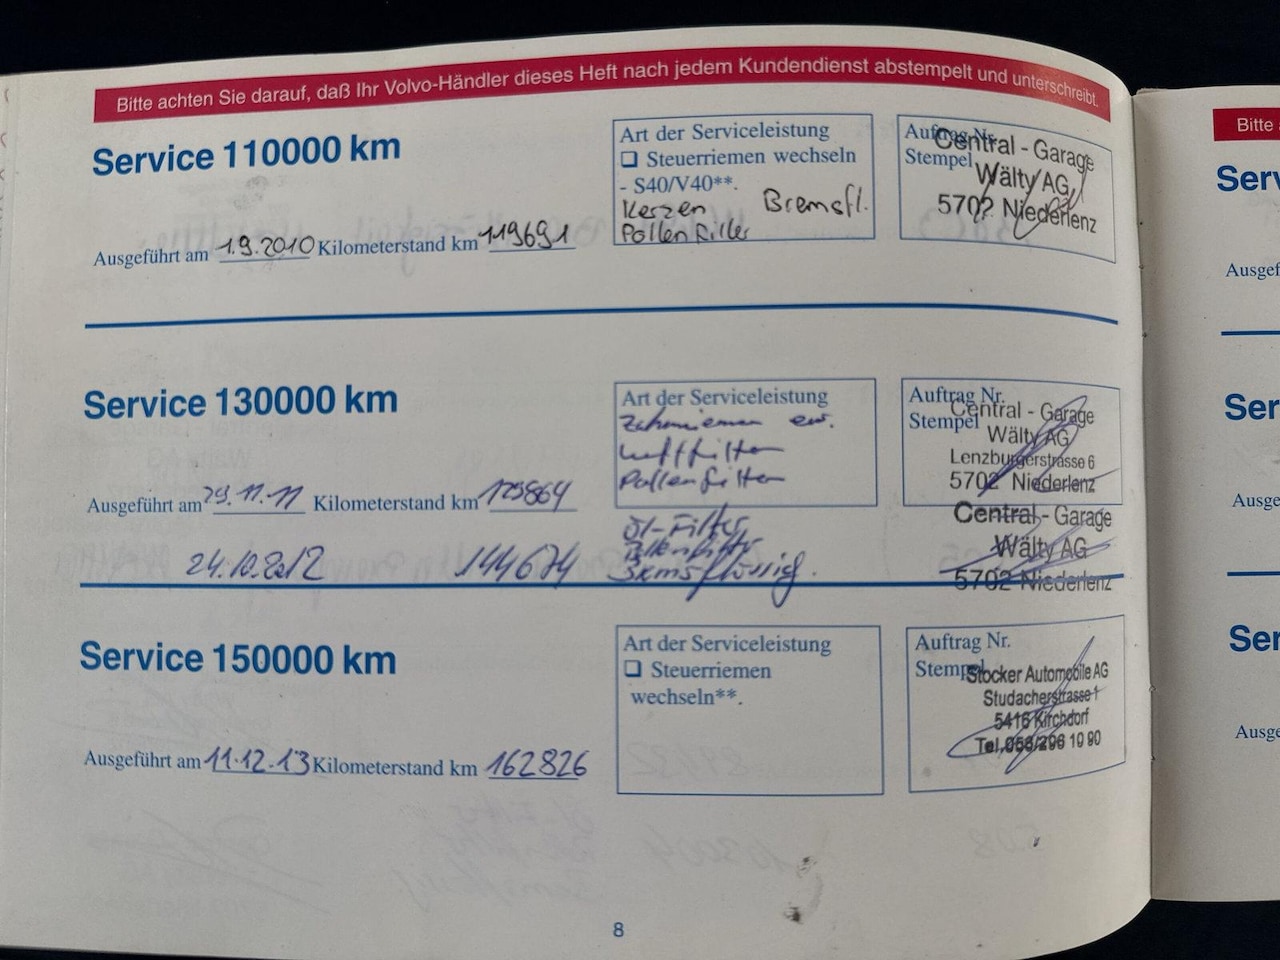 Bitte achten Sie darauf, daß Ihr Volvo-Händler dieses Heft nach jedem Kundendienst abstempelt und unterschreibt.
Service 110000 km
Art der Serviceleistung
❏ Steuerriemen wechseln
- S40/V40**.
Kerzen Bremsfl.
Pollenfilter
Auftrag Nr.
Stempel
Central - Garage
Wälty AG
5702 Niederlenz
Ausgeführt am 1.9.2010 Kilometerstand km 119691
Service 130000 km
Art der Serviceleistung
Zahnriemen ers.
Luftfilter
Pollenfilter
Auftrag Nr.
Stempel
Central - Garage
Wälty AG
Lenzburgerstrasse 6
5702 Niederlenz
Ausgeführt am 29.11.11 Kilometerstand km 129864
24.10.2012 144674
Öl-Filter
Pollenfilter
Bremsflüssigk.
Central - Garage
Wälty AG
5702 Niederlenz
Service 150000 km
Art der Serviceleistung
❏ Steuerriemen
wechseln**.
Auftrag Nr.
Stempel
Stocker Automobile AG
Studacherstrasse 1
5416 Kirchdorf
Tel. 056/296 10 90
Ausgeführt am 11.12.13 Kilometerstand km 162826
8
Bitte
Ausgef
Ausge
Ausge